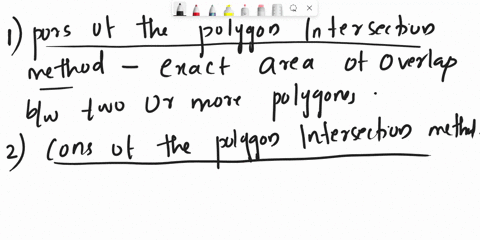 1) pors of the polygon Intersection
method – exact area of overlap
b/w two or more polygons.
2) Cons of the polygon Intersection method.